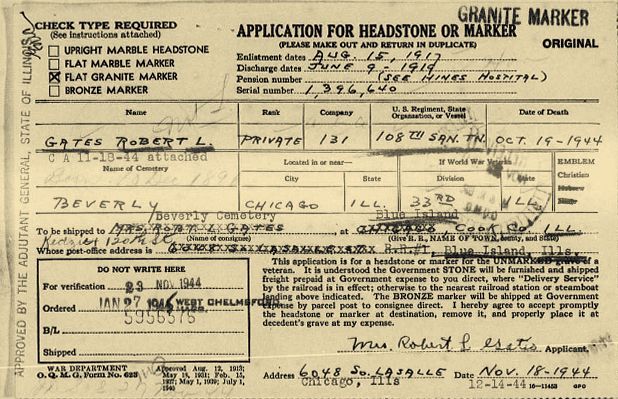 GRANITE MARKER
CHECK TYPE REQUIRED
(See instructions attached)
UPRIGHT MARBLE HEADSTONE
FLAT MARBLE MARKER
FLAT GRANITE MARKER
BRONZE MARKER
APPLICATION FOR HEADSTONE OR MARKER
(PLEASE MAKE OUT AND RETURN IN DUPLICATE)
ORIGINAL
Enlistment dates AUG. 15, 1917
Discharge dates JUNE 9, 1919
Pension number (SEE HINES HOSPITAL)
Serial number 1,396,640
Name Rank Company U. S. Regiment, State Organization, or Vessel Date of Death
GATES ROBERT L. PRIVATE 131 108TH SAN. TN. OCT. 19-1944
C A 11-18-44 attached
Name of Cemetery Located in or near— If World War Veteran EMBLEM
City State Division State Christian
Hebrew
BEVERLY CHICAGO ILL. 33RD ILL
Beverly Cemetery Blue Island
To be shipped to MRS. ROBT GATES at CHICAGO, COOK CO. ILL
Kedzie
(Name of consignee) (Give R. R., NAME OF TOWN, county, and State)
Whose post-office address is 6048 SO. LASALLE ST R.R.#1, Blue Island, Ills.
DO NOT WRITE HERE
For verification 23 NOV. 1944
Ordered JAN 27 1945 WEST CHELMSFORD
5956576
B/L
Shipped
This application is for a headstone or marker for the UNMARKED grave of a
veteran. It is understood the Government STONE will be furnished and shipped
freight prepaid at Government expense to you direct, where "Delivery Service"
by the railroad is in effect; otherwise to the nearest railroad station or steamboat
landing above indicated. The BRONZE marker will be shipped at Government
expense by parcel post to consignee direct. I hereby agree to accept promptly
the headstone or marker at destination, remove it, and properly place it at
decedent's grave at my expense.
Mrs. Robert L Gates Applicant,
WAR DEPARTMENT
O. Q. M. G. Form No. 623
Approved Aug. 12, 1913;
May 18, 1931; Feb. 15,
1937; May 1, 1939; July 1,
Address 6048 So. LASALLE Date NOV. 18-1944
Chicago, Ills 12-14-44 16—11453 GPO
APPROVED BY THE ADJUTANT GENERAL, STATE OF ILLINOIS